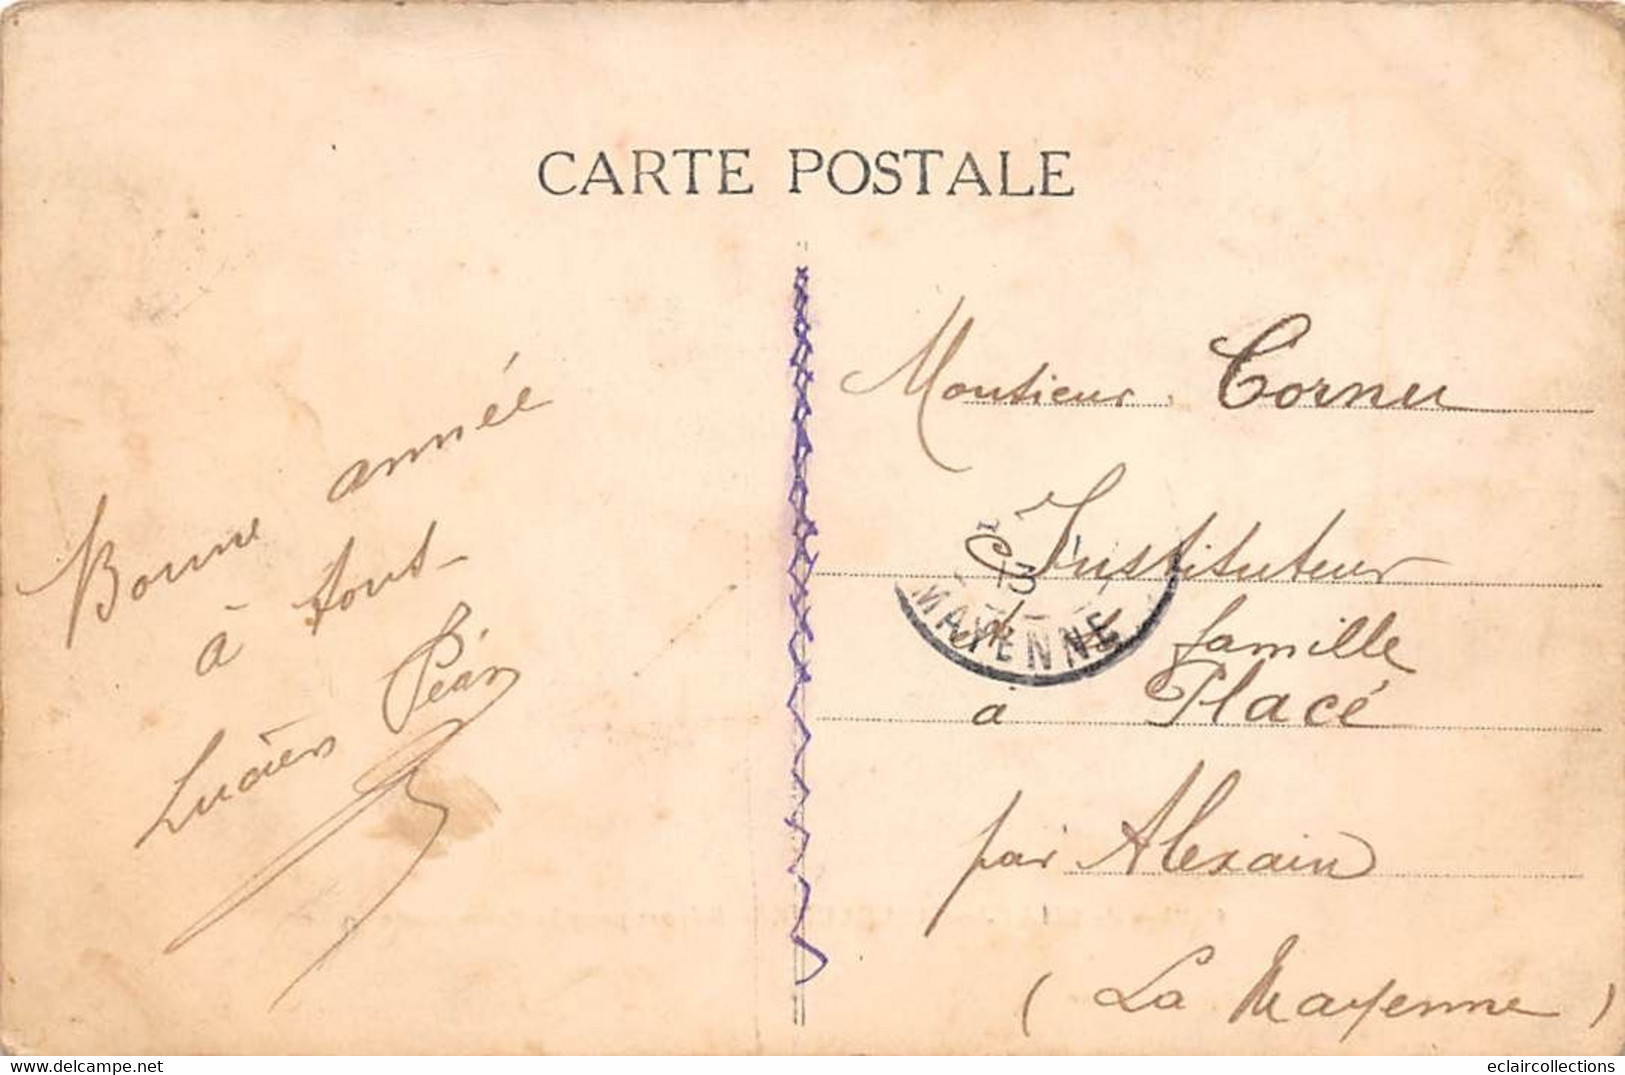 CARTE POSTALE
Bonne année
à tous
Lucien Péan
Monsieur Cornu
Instituteur
famille
à Placé
par Alexain
(La Mayenne)
MAYENNE
eclaircollections